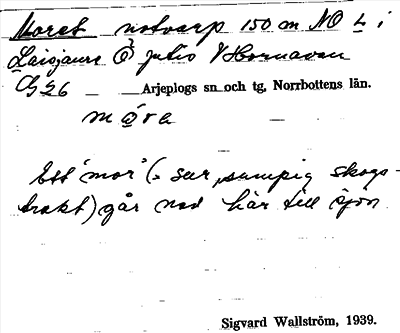 Moret notvarp 150 m NO L i
Laisjaure Ö
G 26 — — Arjeplogs sn och tg, Norrbottens län.
mo̲re
Ett "mor" (= sur, sumpig skogs-
trakt) går ned här till sjön.
Sigvard Wallström, 1939.